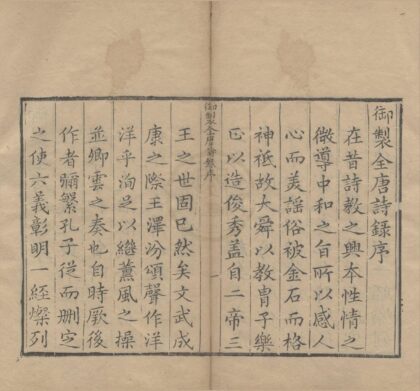 御製全唐詩錄序
在昔詩教之興本性情之
微導中和之旨所以感人
心而美謡俗被金石而格
神祇故大舜以教胄子樂
正以造俊秀盖自二帝三
御製全唐詩錄序
王之世固已然矣文武成
康之際王澤汾頌聲作洋
洋乎洵足以繼薰風之操
並卿雲之奏也自時厥後
作者彌繁孔子從而删定
之使六義彰明一經燦列